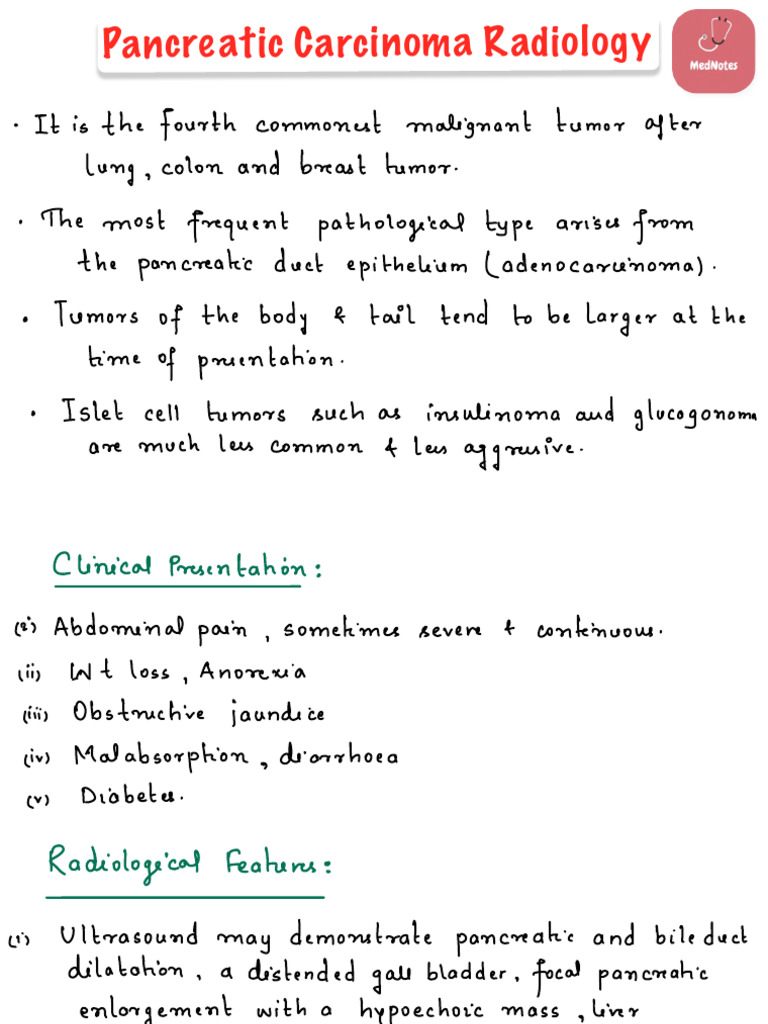 Pancreatic Carcinoma Radiology
MedNotes
• It is the fourth commonest malignant tumor after
lung, colon and breast tumor.
• The most frequent pathological type arises from
the pancreatic duct epithelium (adenocarcinoma).
• Tumors of the body & tail tend to be larger at the
time of presentation.
• Islet cell tumors such as insulinoma and glucogonoma
are much less common & less aggressive.
Clinical Presentation:
(i) Abdominal pain, sometimes severe & continuous.
(ii) Wt loss, Anorexia
(iii) Obstructive jaundice
(iv) Malabsorption, diarrhoea
(v) Diabetes.
Radiological Features:
(i) Ultrasound may demonstrate pancreatic and bile duct
dilatation, a distended gall bladder, focal pancreatic
enlargement with a hypoechoic mass, liver